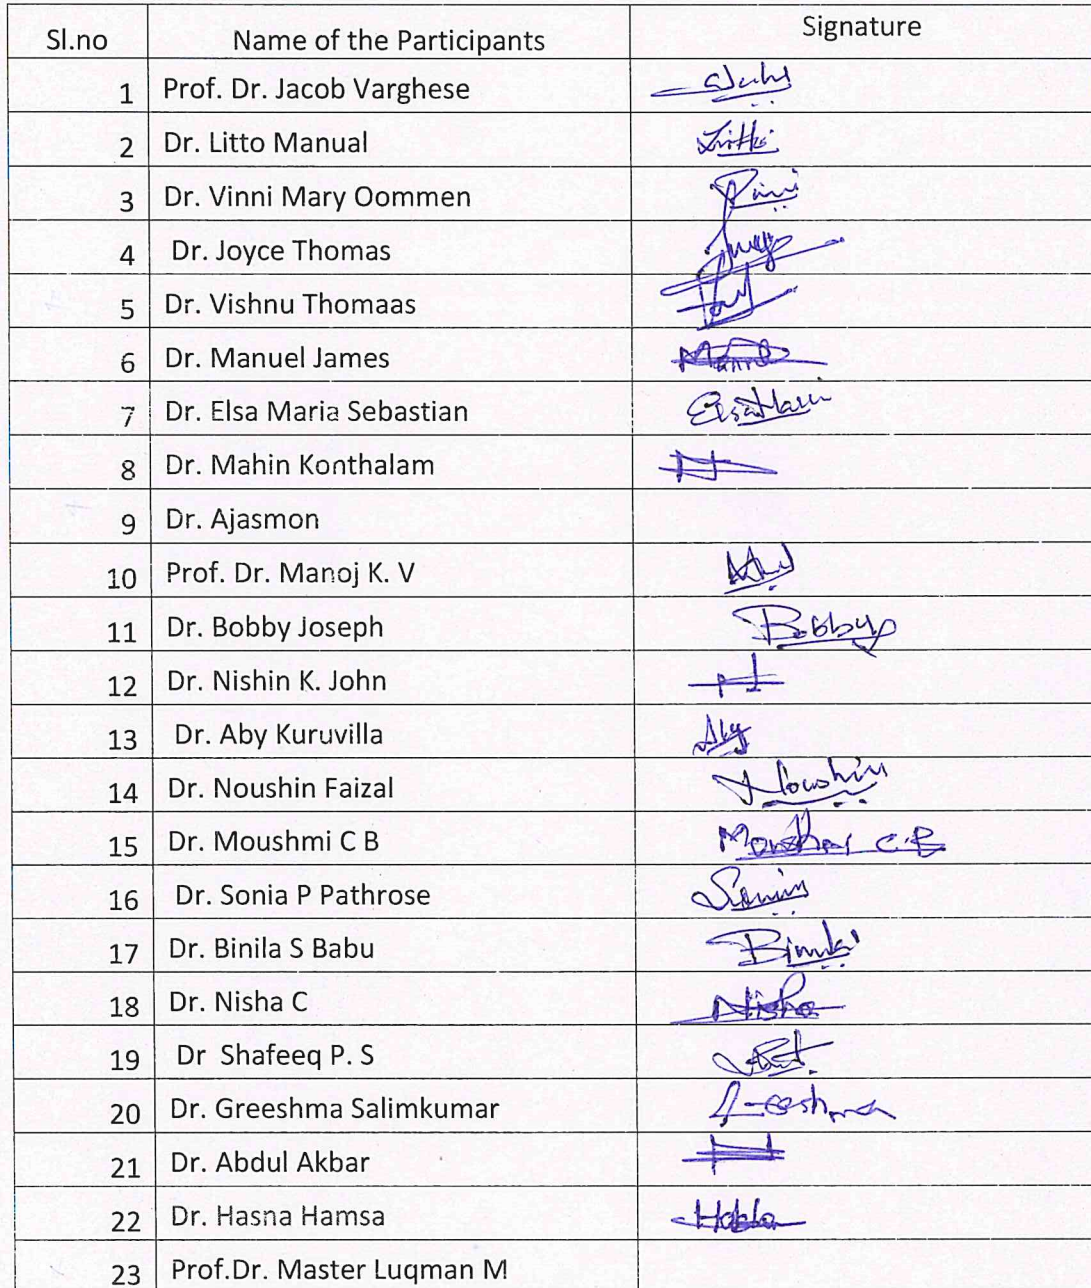 Sl.no Name of the Participants Signature
1 Prof. Dr. Jacob Varghese
2 Dr. Litto Manual
3 Dr. Vinni Mary Oommen
4 Dr. Joyce Thomas
5 Dr. Vishnu Thomaas
6 Dr. Manuel James
7 Dr. Elsa Maria Sebastian
8 Dr. Mahin Konthalam
9 Dr. Ajasmon
10 Prof. Dr. Manoj K. V
11 Dr. Bobby Joseph Bobby
12 Dr. Nishin K. John
13 Dr. Aby Kuruvilla Aby
14 Dr. Noushin Faizal Noushin
15 Dr. Moushmi C B
16 Dr. Sonia P Pathrose
17 Dr. Binila S Babu
18 Dr. Nisha C Nisha
19 Dr Shafeeq P. S
20 Dr. Greeshma Salimkumar
21 Dr. Abdul Akbar
22 Dr. Hasna Hamsa
23 Prof.Dr. Master Luqman M